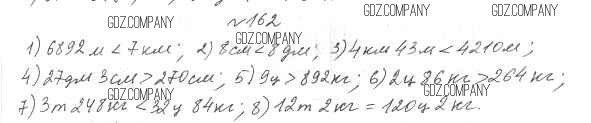 GDZ.COMPANY GDZ.COMPANY
№162
GDZ.COMPANY GDZ.COMPANY
1) 6892 м < 7 км; 2) 8 см < 8 дм; 3) 4 км 43 м < 4210 м;
4) 27 дм 3 см > 270 см; 5) 9 ц > 892 кг; 6) 2 ц 86 кг > 264 кг;
GDZ.COMPANY GDZ.COMPANY
7) 3 т 248 кг < 32 ц 84 кг; 8) 12 т 2 кг = 120 ц 2 кг.